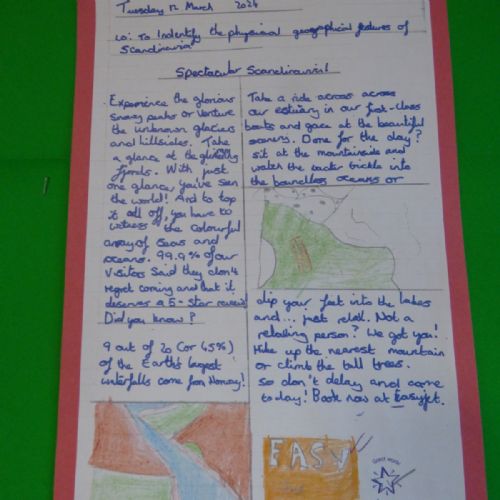 Tuesday 12 March 2024
LO: To Indentify the physical geographical features of
Scandinavia
Spectacular Scandinavia!
Experience the glorious
snowy peaks or venture
the unknown glaciers
and hillsides. Take
a glance at the
fjords. With just
one glance, you've seen
the world! And to top
it all off, you have to
witness the colourful
array of seas and
oceans. 99.9% of our
visitors said they don't
regret coming and that it
deserves a 5-star review!
Did you know?
9 out of 20 (or 45%)
of the Earth's largest
waterfalls come from Norway!
Take a ride across across
our estuary in our first-class
boats and gaze at the beautiful
scenery. Done for the day?
sit at the mountainside and
watch the water trickle into
the boundless oceans or
dip your feet into the lakes
and... just relax. Not a
relaxing person? We got you!
Hike up the nearest mountain
or climb the tall trees.
So don't delay and come
today! Book now at Easyjet.
EASY
Great work!